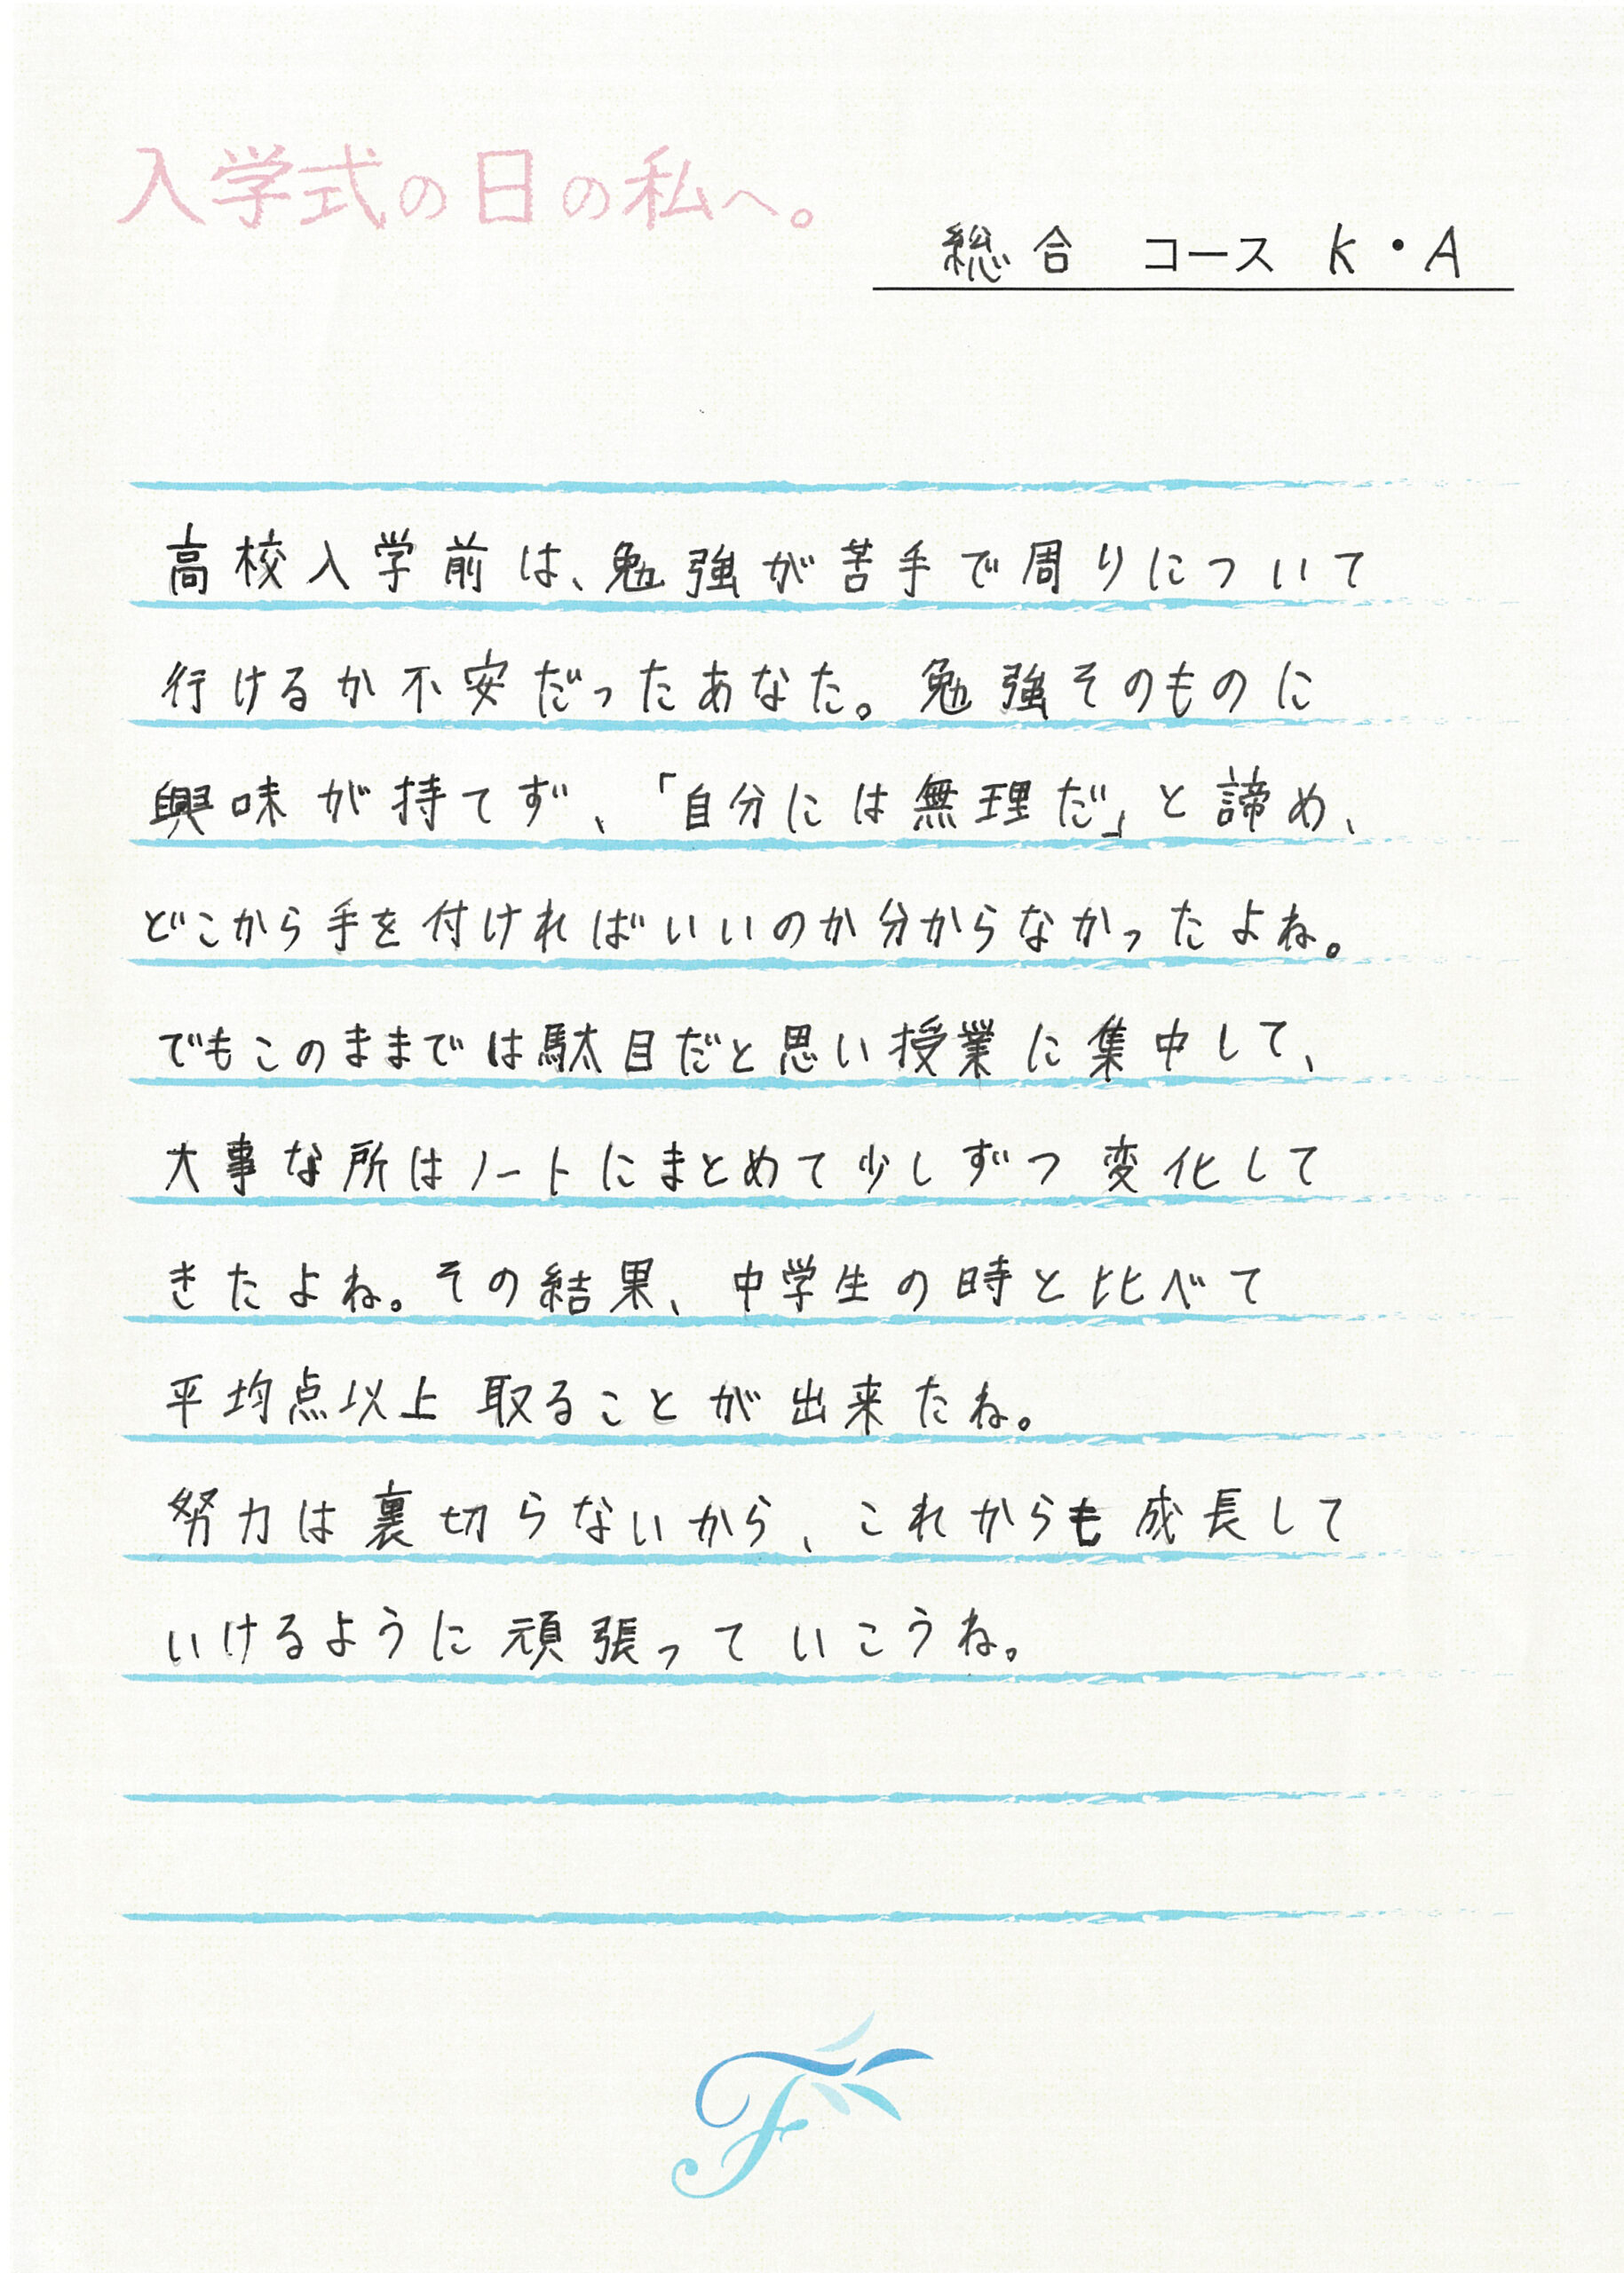 入学式の日の私へ。
総合 コース K・A
高校入学前は、勉強が苦手で周りについて
行けるか不安だったあなた。勉強そのものに
興味が持てず、「自分には無理だ」と諦め、
どこから手を付ければいいのか分からなかったよね。
でもこのままでは駄目だと思い授業に集中して、
大事な所はノートにまとめて少しずつ変化して
きたよね。その結果、中学生の時と比べて
平均点以上取ることが出来たね。
努力は裏切らないから、これからも成長して
いけるように頑張っていこうね。
F